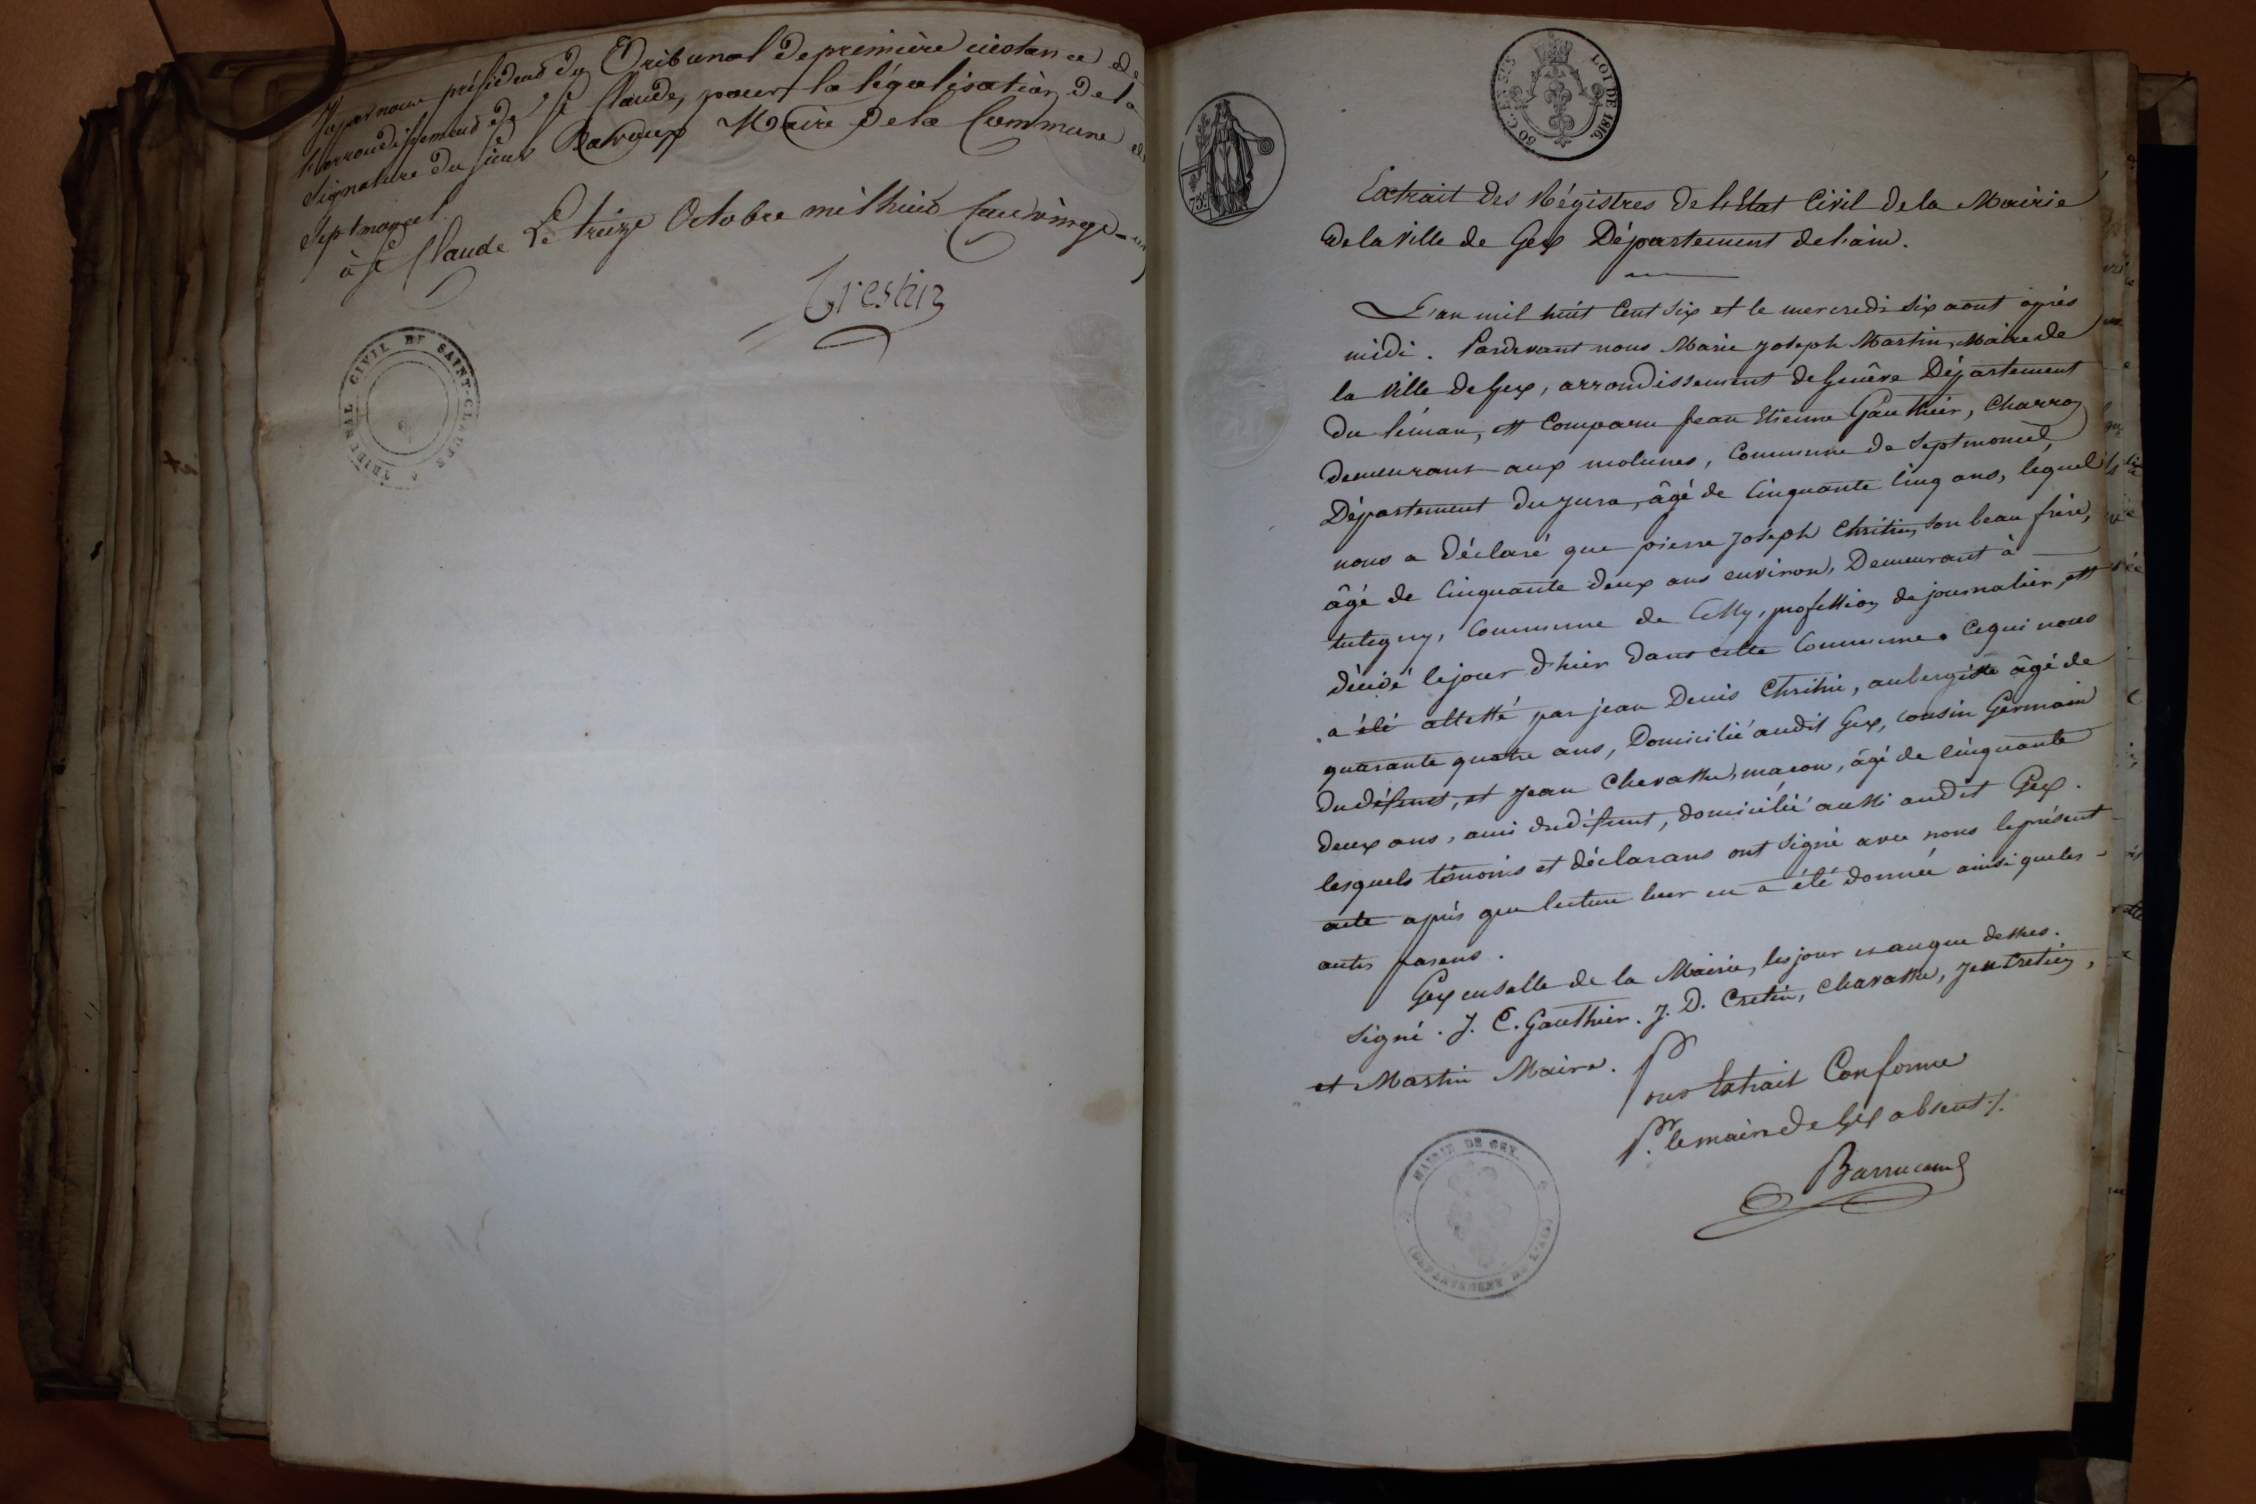 Vu par nous président du Tribunal de première instance de
l'arrondissement de St Claude, pour la légalisation de la
signature du sieur Maire de la Commune de
Septmoncel.
à St Claude Le treize Octobre mil huit Cent vingt-un
Crestin
TRIBUNAL CIVIL DE SAINT-CLAUDE
50 C. EN SUS
LOI DE 1816.
75c
Extrait des Régistres de l'Etat Civil de la Mairie
de la Ville de Gex Département de l'ain.
L'an mil huit Cent Six et le mercredi Six aout après
midi. Pardevant nous Marie Joseph Martin, Maire de
la Ville de Gex, arrondissement de Genêve Département
du léman, est Comparu Jean Etienne Gauthier, Charron
demeurant aux molunes, Commune de Septmoncel,
Département du Jura, âgé de Cinquante Cinq ans, lequel
nous a déclaré que pierre Joseph Chritin, son beau frère,
âgé de Cinquante deux ans environ, Demeurant à
tutegny, Commune de Cessy, profession de journalier, est
décédé le jour d'hier dans cette Commune. Ce qui nous
a été attesté par jean Denis Chritin, aubergiste âgé de
quarante quatre ans, Domicilié audit Gex, cousin Germain
du défunt, et Jean Chevassu, maçon, âgé de Cinquante
deux ans, ami du défunt, domicilié aussi audit Gex.
lesquels témoins et déclarans ont signé avec nous le présent
acte après que lecture leur en a été donnée ainsi que les
autres parens.
Gex en salle de la Mairie, les jour et an que dessus.
Signé. J. E. Gauthier. J. D. Cretin, Chavassu,
et Martin Maire.
Pour Extrait Conforme
Pr. le maire de Gex absent.
MAIRIE DE GEX.
(DÉPARTEMENT DE L'AIN)